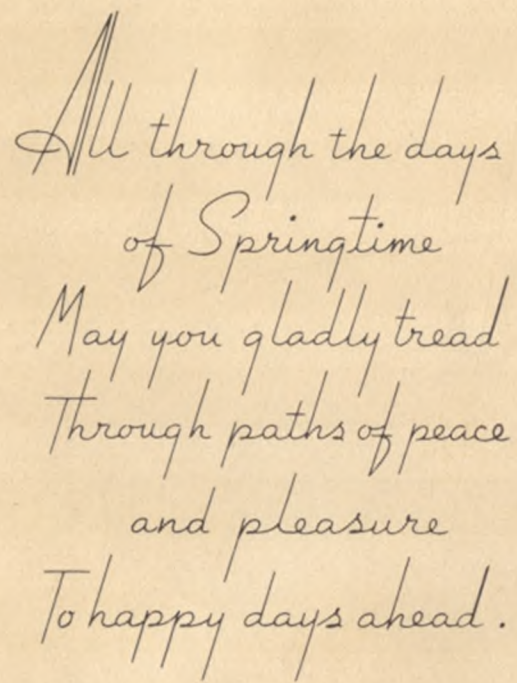 All through the days
of Springtime
May you gladly tread
Through paths of peace
and pleasure
To happy days ahead.